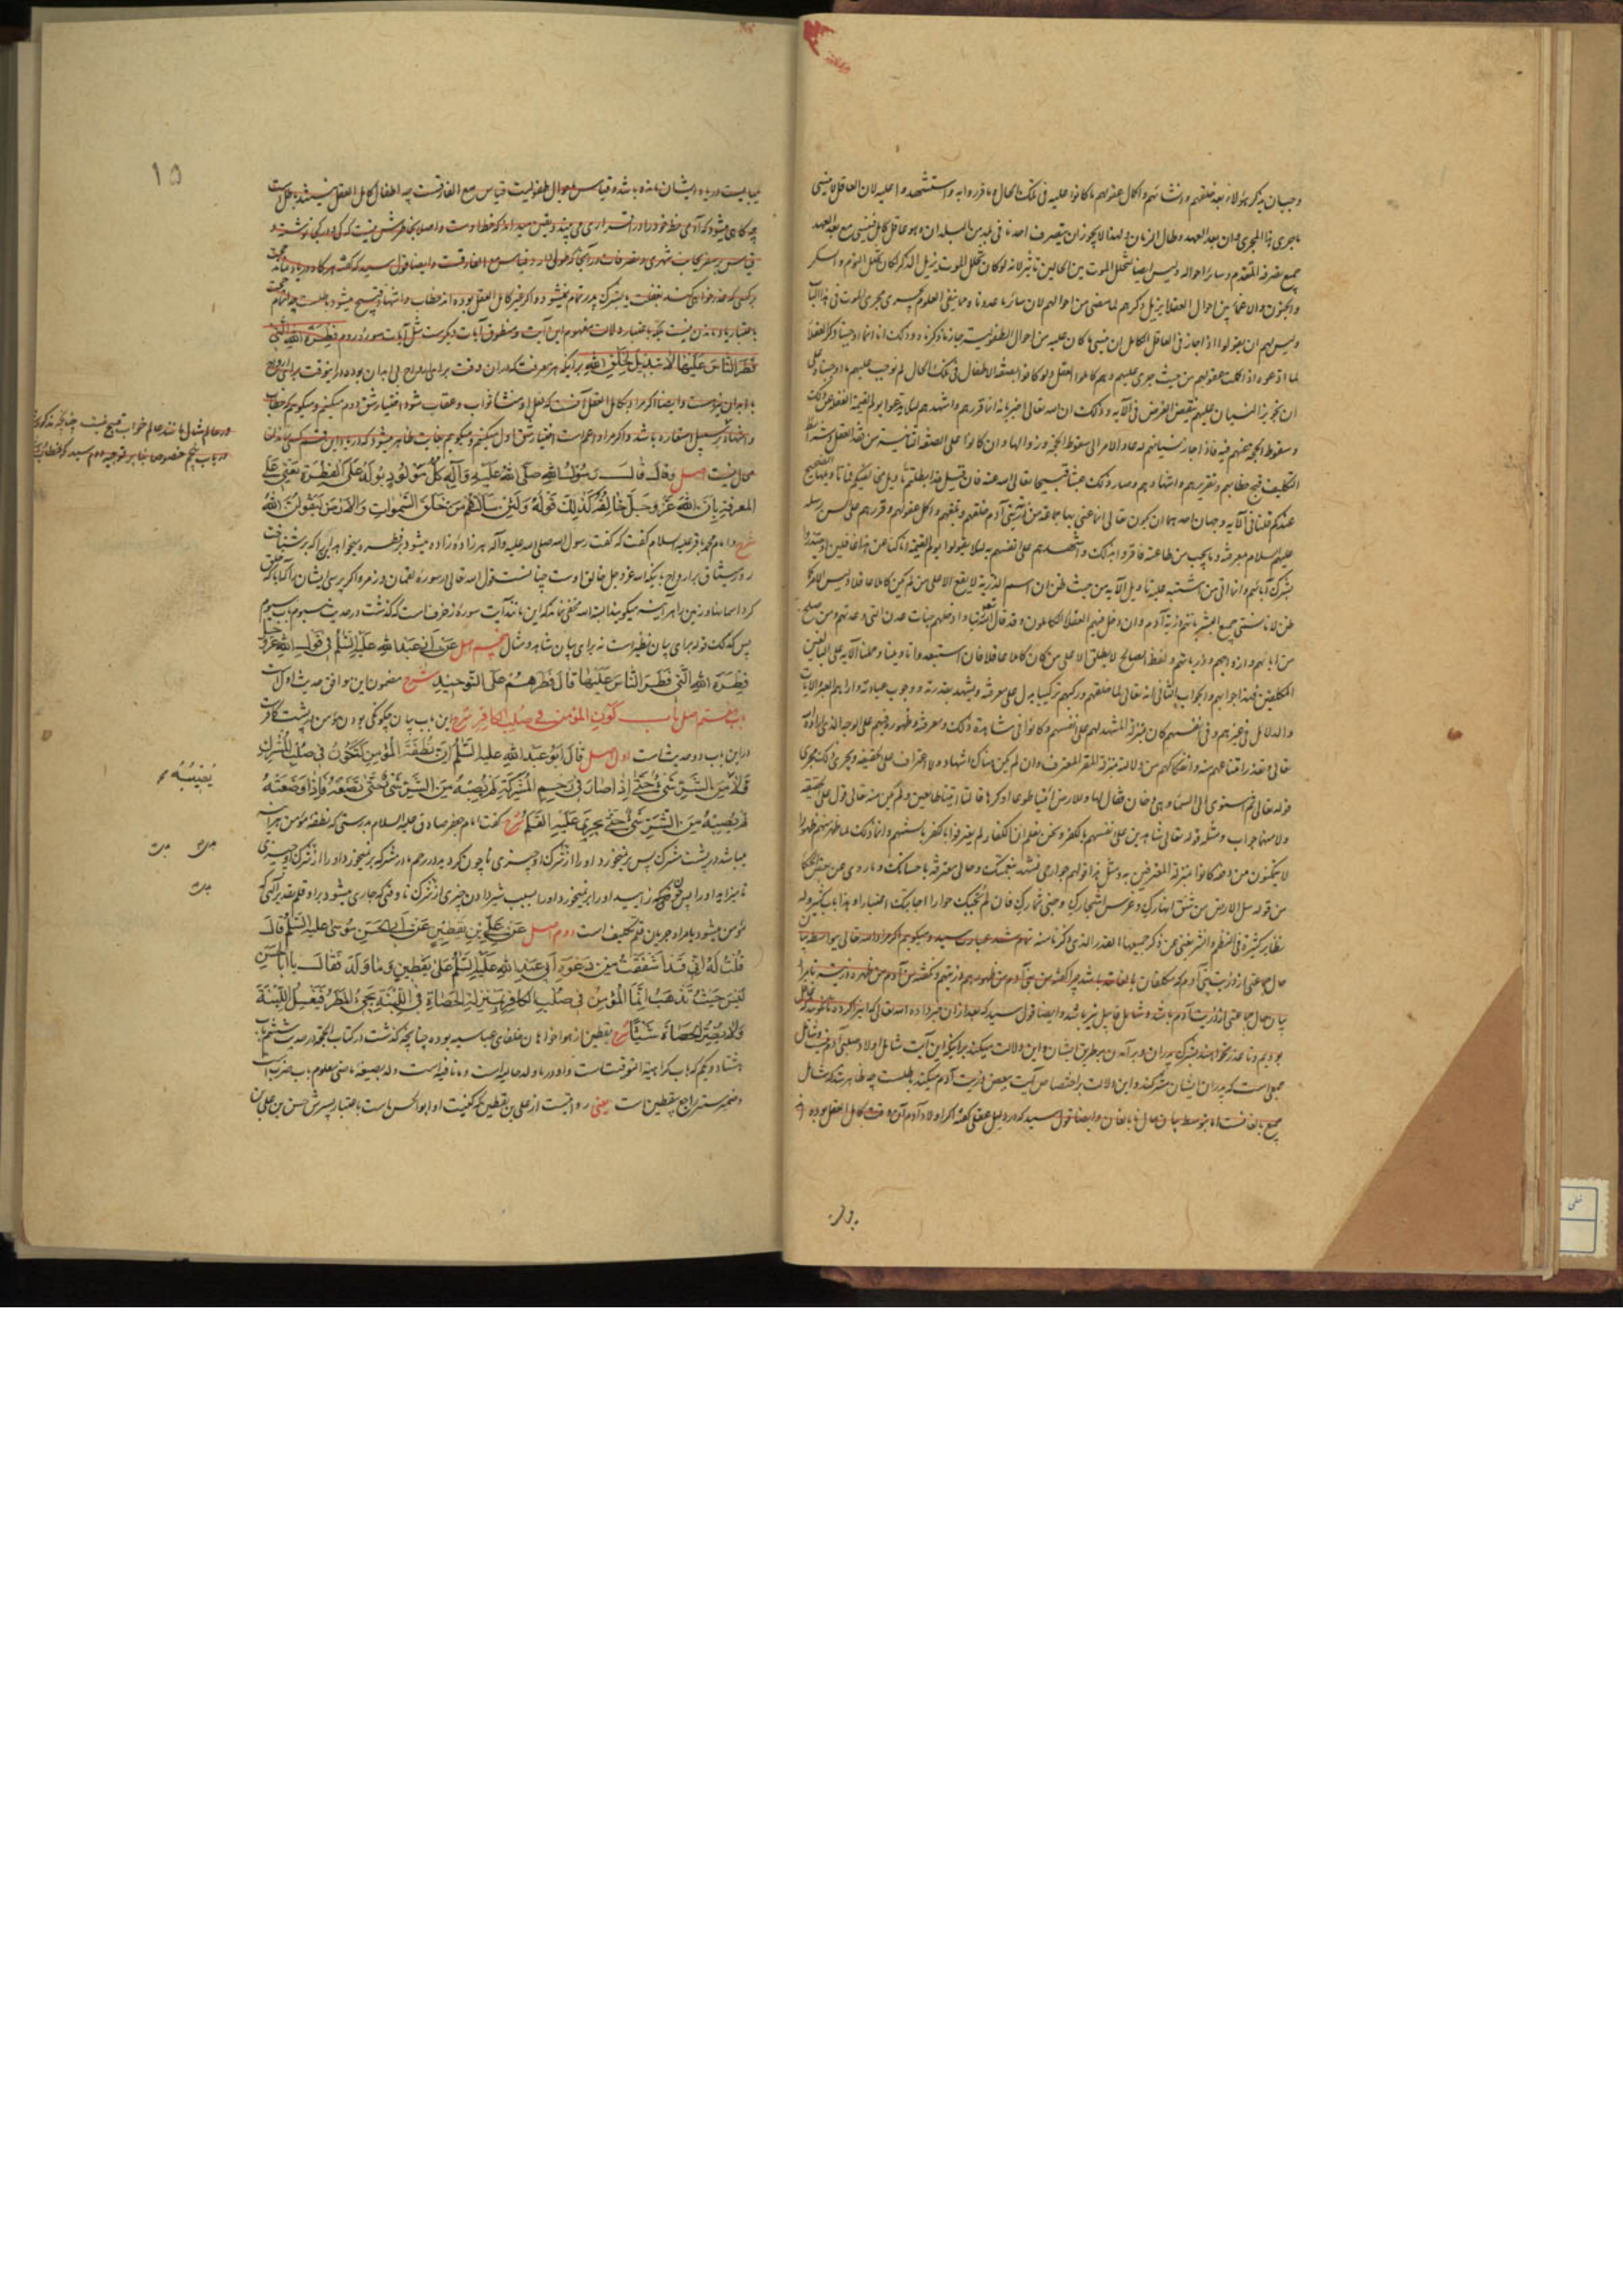 وجب ان یذکر هؤلاء بعد خلقهم و انشائهم و اکمال عقولهم ما کانوا علیه فی تلک الحال و ما قرروا به و استشهدوا علیه لان العاقل لا ینسی
ما جری هذا المجری و ان بعد العهد و طال الزمان و لهذا لا یجوز ان یتصرف احدنا فی بلد من البلدان و هو عاقل کامل فینسی مع بعد العهد
جمیع تصرفه المتقدم و سایر احواله و لیس ایضا لتخلل الموت بین الحالین تاثیر لانه لو کان تخلل الموت یزیل الذکر لکان تخلل النوم و السکر
و الجنون و الاغماء بین احوال العقلاء یزیل ذکرهم لما مضی من احوالهم لان سائر ما عددناه مما ینفی العلوم یجری مجری الموت فی هذا الباب
و لیس لهم ان یقولوا اذا جاز فی العاقل الکامل ان ینسی ما کان علیه من احوال الطفولیة جاز ما ذکرناه و ذلک انا انما اوجبنا ذکر العقلاء
لما ادعوه اذا کملت عقولهم من حیث جری علیهم و هم کاملوا العقل و لو کانوا بصفة الاطفال فی تلک الحال لم نوجب علیهم ما اوجبناه علی
ان تجویز النسیان علیهم ینقض الغرض فی الآیة و ذلک ان الله تعالی اخبر بانه انما قررهم و اشهدهم لئلا یدعوا یوم القیمة الغفلة عن ذلک
و سقوط الحجة عنهم فیه فاذا جاز نسیانهم له عاد الامر الی سقوط الحجة و زوالها و ان کانوا علی الصفة الثانیة من فقد العقل و شرائط
التکلیف قبح خطابهم و تقریرهم و اشهادهم و صار ذلک عبثا قبیحا تعالی الله عنه فان قیل قد ابطلتم تاویل مخالفیکم فما تاویلها الصحیح
عندکم قلنا فی الآیة وجهان احدهما ان یکون تعالی انما عنی بها جماعة من ذریة بنی آدم خلقهم و بلغهم و اکمل عقولهم و قررهم علی لسن رسله
علیهم السلام بمعرفته و ما یجب من طاعته فاقروا بذلک و اشهدهم علی انفسهم به لئلا یقولوا یوم القیمة انا کنا عن هذا غافلین او یعتذروا
بشرک آبائهم و انما اتی من اشتبه علیه تاویل الآیة من حیث ظن ان اسم الذریة لا یقع الا علی من لم یکن کاملا عاقلا و لیس الامر کما
ظن لانا نسمی جمیع البشر بانهم ذریة آدم و ان دخل فیهم العقلاء الکاملون و قد قال الله تعالی ربنا و ادخلهم جنات عدن التی وعدتهم و من صلح
من آبائهم و ازواجهم و ذریاتهم و لفظ الصالح لا یطلق الا علی من کان کاملا عاقلا فان استبعدوا تاویلنا و حملنا الآیة علی البالغین
المکلفین فهذا جوابهم و الجواب الثانی انه تعالی لما خلقهم و رکبهم ترکیبا یدل علی معرفته و یشهد بقدرته و وجوب عبادته و اراهم العبر و الآیات
و الدلائل فی غیرهم و فی انفسهم کان بمنزلة المشهد لهم علی انفسهم و کانوا فی مشاهدة ذلک و معرفته و ظهوره فیهم علی الوجه الذی اراده
تعالی و تعذر امتناعهم منه و انفکاکهم من دلالته بمنزلة المقر المعترف و ان لم یکن هناک اشهاد و لا اعتراف علی الحقیقة و یجری ذلک مجری
قوله تعالی ثم استوی الی السماء و هی دخان فقال لها و للارض ائتیا طوعا او کرها قالتا اتینا طائعین و لم یکن منه تعالی قول علی الحقیقة
و لا منهما جواب و مثله قوله تعالی شاهدین علی انفسهم بالکفر و نحن نعلم ان الکفار لم یعترفوا بالکفر بالسنتهم و انما ذلک لما ظهر منهم ظهورا
لا یتمکنون من دفعه کانوا بمنزلة المعترفین به و مثل هذا قولهم جوارحی تشهد بنعمتک و حالی معترفة باحسانک و ما روی عن بعض الحکماء
من قوله سل الارض من شق انهارک و غرس اشجارک و جنی ثمارک فان لم تجبک حوارا اجابتک اعتبارا و هذا باب کبیر و له
نظایر کثیرة فی النظم و النثر یغنی عن ذکر جمیعها القدر الذی ذکرناه منه تمام شد عبارت سید و میگویم اگر مراد الله تعالی بواسطه بیان
حال جماعتی از ذریت بنی آدم که مکلفان بالغانند باشد چرا گفته من بنی آدم من ظهورهم ذریتهم و نگفته من آدم من ظهره ذریته تا بر
بیان حال جماعتی از ذریت آدم باشد و شامل قابیل نیز باشد و ایضا قول سید که بعد از ان خبر داده الله تعالی که این را کرده تا نگویند که ما غافل
بودیم و تا عذر نخواهند بشرک پدران و برآمدن بر طریق ایشان و این دلالت میکند بر اینکه این آیت شامل اولاد صلبی آدم نیست و شامل
جمعی است که پدران ایشان مشرکند و این دلالت بر اختصاص آیت ببعض ذریت آدم میکند باطلست چه ظاهرست که شامل
جمیع بالغانست اما بتوسط بیان حال نابالغان و ایضا قول سید که در دلیل عقلی گفته اگر اولاد آدم آن وقت کامل العقل بوده اند
بودن
۱۵
میبایست در یاد ایشان مانده باشد و قیاس باحوال طفولیت قیاس مع الفارقست چه اطفال کامل العقل نیستند باطل است
چه گاهی میشود که آدمی خط خود را در اقراری می بیند و یقین میداند که خط اوست و اصلا بخاطرش نیست که کی و در کجا نوشته و
قیاس بر سفر بجانب شهری و تصرفات در آنجا که طولی دارد قیاس مع الفارقست و ایضا قول سید که گفته هر گاه در یاد نماند حجت
بر کسی که عذر خواهی کند بغفلت یا بشرک پدر تمام نمیشود و اگر غیر کامل العقل بوده اند خطاب و اشهاد قبیح میشود باطلست چه اتمام حجت
باعتبار یاد ماندن نیست بلکه باعتبار دلالت مفهوم این آیت و منطوق آیات دیگرست مثل آیات سوره روم فطرة الله التی
فطر الناس علیها لا تبدیل لخلق الله بر اینکه هر معرفت که در ان وقت برای ارواح بی ابدان بوده در اینوقت برای ارواح
با ابدان نیز هست و ایضا اگر مراد بکامل العقل آنست که فعل او منشا ثواب و عقاب شود اختیار شق دوم میکنیم و میگوییم که خطاب
و اشهاد بر سبیل استعاره باشد و اگر مراد اعم است اختیار شق اول میکنیم و میگوییم بغایت ظاهر میشود که در یاد این قسم کسی ماندن
محال نیست اصل وَقَالَ قَالَ رَسُولُ اللهِ صَلَّی اللهُ عَلَیْهِ وَآلِهِ کُلُّ مَوْلُودٍ یُولَدُ عَلَی الْفِطْرَةِ یَعْنِی عَلَی
الْمَعْرِفَةِ بِاَنَّ اللهَ عَزَّ وَجَلَّ خَالِقُهُ کَذٰلِکَ قَوْلُهُ وَلَئِنْ سَاَلْتَهُمْ مَنْ خَلَقَ السَّمٰوَاتِ وَالْاَرْضَ لَیَقُولُنَّ اللهُ
شرح و امام محمد باقر علیه السلام گفت که گفت رسول الله صلی الله علیه و آله هر زاده زاده میشود بر فطرت میخواهد این را که بر شناخت
روز میثاق بر ارواح باینکه الله عز و جل خالق اوست چنانست قول الله تعالی در سوره لقمان و زمر و اگر پرسی ایشان را که آیا که خلق
کرد آسمانها و زمین را هر آینه میگویند البته الله مخفی نماند که این مانند آیت سوره زخرف است که گذشت در حدیث سیوم باب سیوم
پس کذلک قوله برای بیان نظیر است نه برای بیان شاهد و مثال پنجم اصل عَنْ اَبِی عَبْدِ اللهِ عَلَیْهِ السَّلَمُ فِی قَوْلِ اللهِ عَزَّ وَجَلَّ
فِطْرَةَ اللهِ الَّتِی فَطَرَ النَّاسَ عَلَیْهَا قَالَ فَطَرَهُمْ عَلَی التَّوْحِیدِ شرح مضمون این موافق حدیث اول است
باب هفتم اصل بَابُ کَوْنِ الْمُؤْمِنِ فِی صُلْبِ الْکَافِرِ شرح این باب بیان چگونگی بودن مؤمن در پشت کافرست
در این باب دو حدیث است اول اصل قَالَ اَبُو عَبْدِ اللهِ عَلَیه السَّلَمُ اِنَّ نُطْفَةَ الْمُؤْمِنِ لَتَکُونُ فِی صُلْبِ الْمُشْرِکِ
فَلَا مِنَ الشَّرِّ شَیْءٌ حَتّٰی اِذَا صَارَ فِی رَحِمِ الْمُشْرِکَةِ لَمْ یُصِبْهُ مِنَ الشَّرِّ شَیْءٌ حَتّٰی تَضَعَهُ فَاِذَا وَضَعَتْهُ
لَمْ یُصِبْهُ مِنَ الشَّرِّ شَیْءٌ حَتّٰی یَجْرِیَ عَلَیْهِ الْقَلَمُ شرح گفت امام جعفر صادق علیه السلام بدرستی که نطفه مؤمن هر آینه
میباشد در پشت مشرک پس بر نمیخورد او را از شرک او چیزی تا چون گردید در رحم مادر مشرکه بر نمیخورد او را از شرک او چیزی
تا بزاید او را پس چون که زایید او را بر نمیخورد او را بسبب شیر دادن چیزی از شرک تا وقتی که جاری میشود بر او قلم تقدیر آنکه
مؤمن میشود یا مراد جریان قلم تکلیف است دوم اصل عَنْ عَلِیِّ بْنِ یَقْطِینٍ عَنْ اَبِی الْحَسَنِ مُوسٰی عَلَیْهِ السَّلَمُ قَالَ
قُلْتُ لَهُ اِنِّی قَدْ اَشْفَقْتُ مِنْ دَعْوَةِ اَبِی عَبْدِ اللهِ عَلَیْهِ السَّلَمُ عَلٰی یَقْطِینٍ وَمَا وَلَدَ فَقَالَ یَا اَبَا الْحَسَنِ
لَیْسَ حَیْثُ تَذْهَبُ اِنَّمَا الْمُؤْمِنُ فِی صُلْبِ الْکَافِرِ بِمَنْزِلَةِ الْحَصَاةِ فِی اللَّبِنَةِ یَجِیءُ الْمَطَرُ فَیَغْسِلُ اللَّبِنَةَ
وَلَا یَضُرُّ الْحَصَاةَ شَیْئًا شرح یقطین از هواخواهان خلفای عباسیه بوده چنانچه گذشت در کتاب الحجة در حدیث ششم باب
هشتاد و یکم که باب کراهیة التوقیت است واو در وما ولد حالیه است و ما نافیه است ولد بصیغه ماضی معلوم باب ضرب است
و ضمیر مستتر راجع بیقطین است یعنی روایتست از علی بن یقطین که کنیت او ابو الحسن است باعتبار پسرش حسن بن علی بن
در عالم مثال مانند عالم خواب قبیح نیست چنانچه مذکور شد
در باب پنجم خصوصا بنا بر توجیه دوم سید که خطاب
یُصِیبُهُ